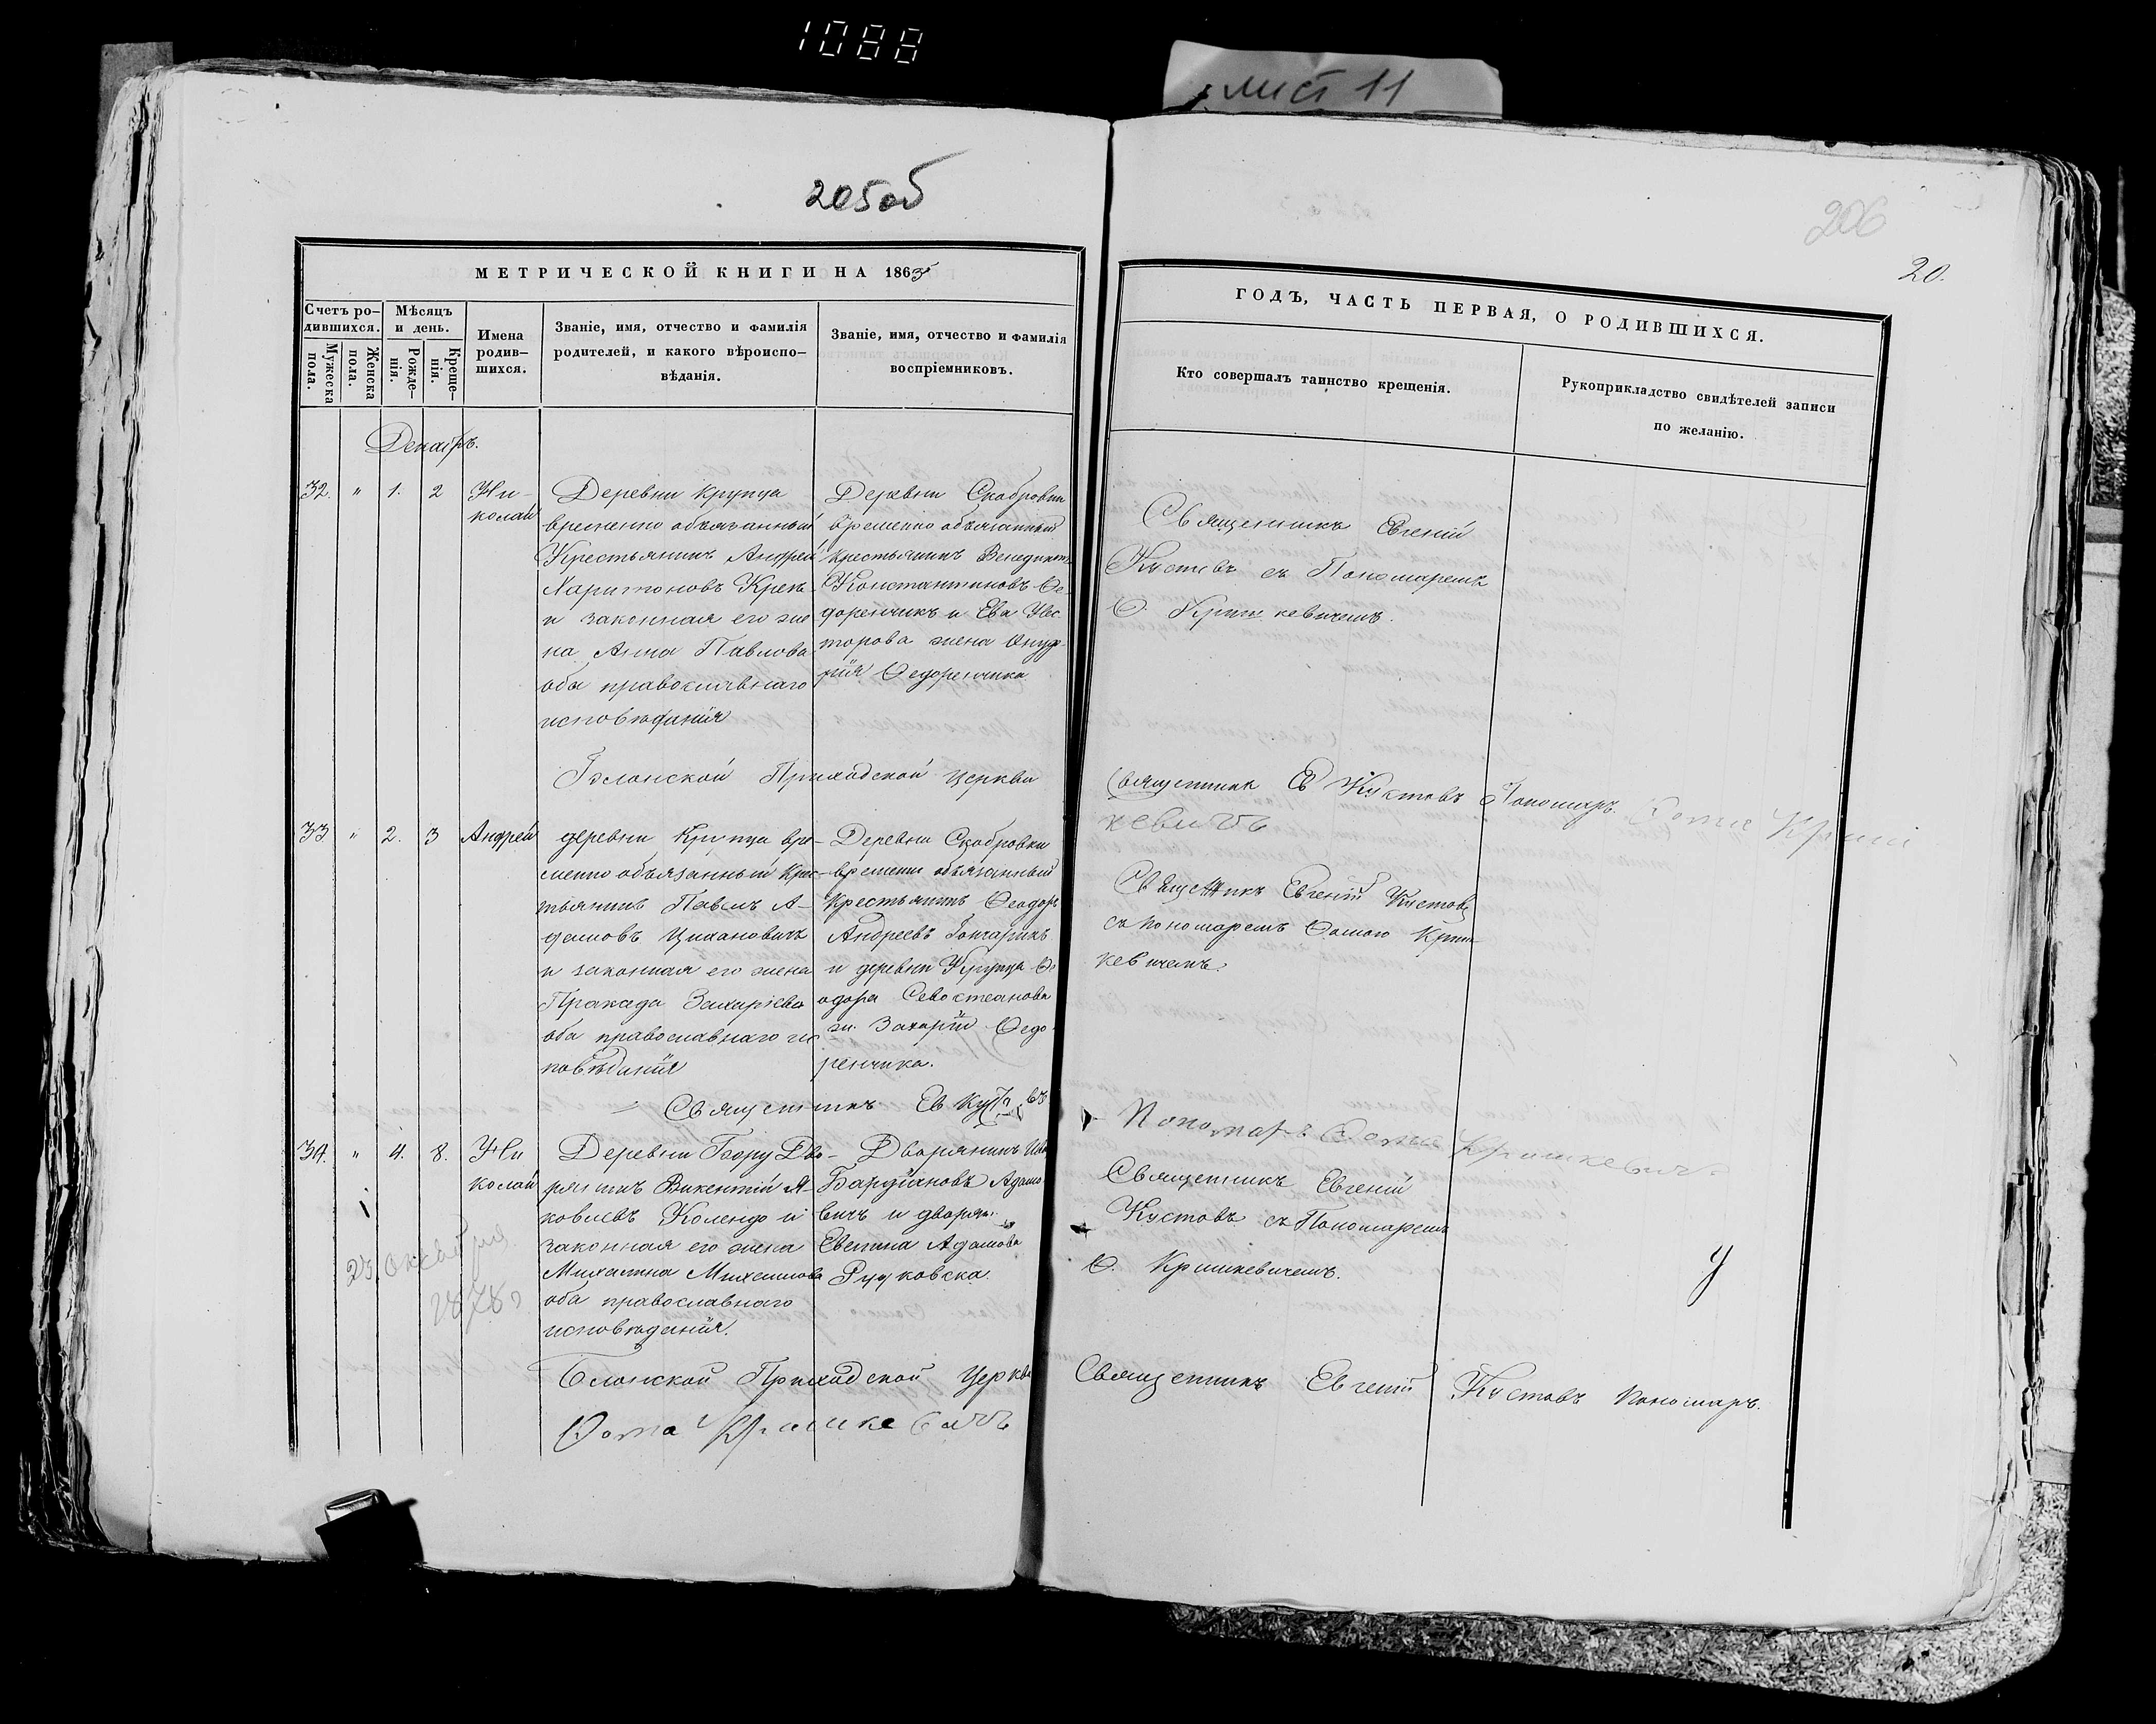 1088
лист 11
205об
206
20.
МЕТРИЧЕСКОЙ КНИГИ НА 1865
ГОДЪ, ЧАСТЬ ПЕРВАЯ, О РОДИВШИХСЯ.
Счетъ ро-
дившихся.
Мужеска
пола.
Женска
пола.
Мѣсяцъ
и день.
Рожде-
нія.
Креще-
нія.
Имена
родив-
шихся.
Званіе, имя, отчество и фамилія
родителей, и какого вѣроиспо-
вѣданія.
Званіе, имя, отчество и фамилія
воспріемниковъ.
Кто совершалъ таинство крещенія.
Рукоприкладство свидѣтелей записи
по желанію.
Декабрь.
32. " 1. 2
Ни-
колай
Деревни Крупца
временно обязанный
Крестьянинъ Андрей
Харитоновъ
и законная его же
на Анна Павлова
оба православнаго
исповѣданія
Деревни Скобровки
временно обязанный
крестьянинъ Венедиктъ
Константиновъ Ѳе-
доренчикъ и Ева Нес
торова жена Онуф
рія Ѳедоренчика
Священникъ Евгеній
Кустовъ съ Пономаремъ
Ѳ. Кришкевичемъ.
Блонской Приходской церкви
Священник Ев Кустовъ Пономарь Ѳома Криш
кевичъ
33 " 2. 3 Андрей
деревни Крупца вре-
менно обязанный Крес-
тьянинъ Павелъ А-
дамовъ Цихановичъ
и законная его жена
Пракседа Захаріева
оба православнаго ис
повѣданія
Деревни Скобровки
временно обязанный
Крестьянинъ Ѳеодоръ
Андреевъ Гончарикъ
и деревни Крупца Ѳе
одора Севостеянова
ж. Захарія Ѳедо-
ренчика.
Священникъ Евгеній Кустовъ
съ пономаремъ Ѳомою Криш
кевичемъ.
Священникъ Ев Кустовъ
Пономарь Ѳома Кришкевичъ
34. " 4. 8.
Ни
колай
Деревни Бору Дво-
рянинъ Викентій Я-
ковлевъ Колендо и
законная его жена
Михалина
оба православнаго
исповѣданія.
Дворянинъ
Адамо
вичъ и дворян.
Евелина Адамова
Рудковска.
Священникъ Евгеній
Кустовъ съ Пономаремъ
Ѳ. Кришкевичемъ.
23 октября
1878
Блонской Приходской Церкви
Священникъ Евгеній Кустовъ Пономарь.
Ѳома Кришкевичъ